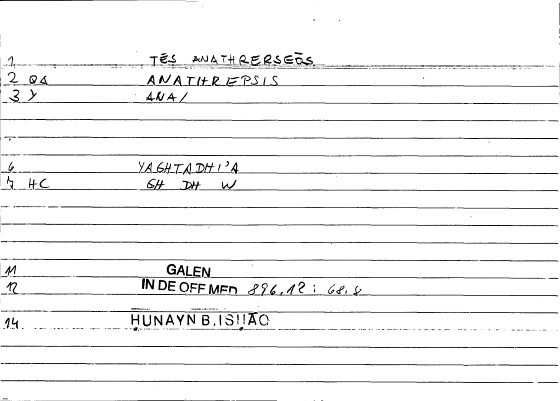 1 TĒS ANATHRERSEŌS
2 QA ANATHREPSIS
3 Y ANA/
6 YAGHTADHI'A
7 HC GH DH W
11 GALEN
12 IN DE OFF MED 896,12 : 68,8
14 ḤUNAYN B. ISḤĀQ